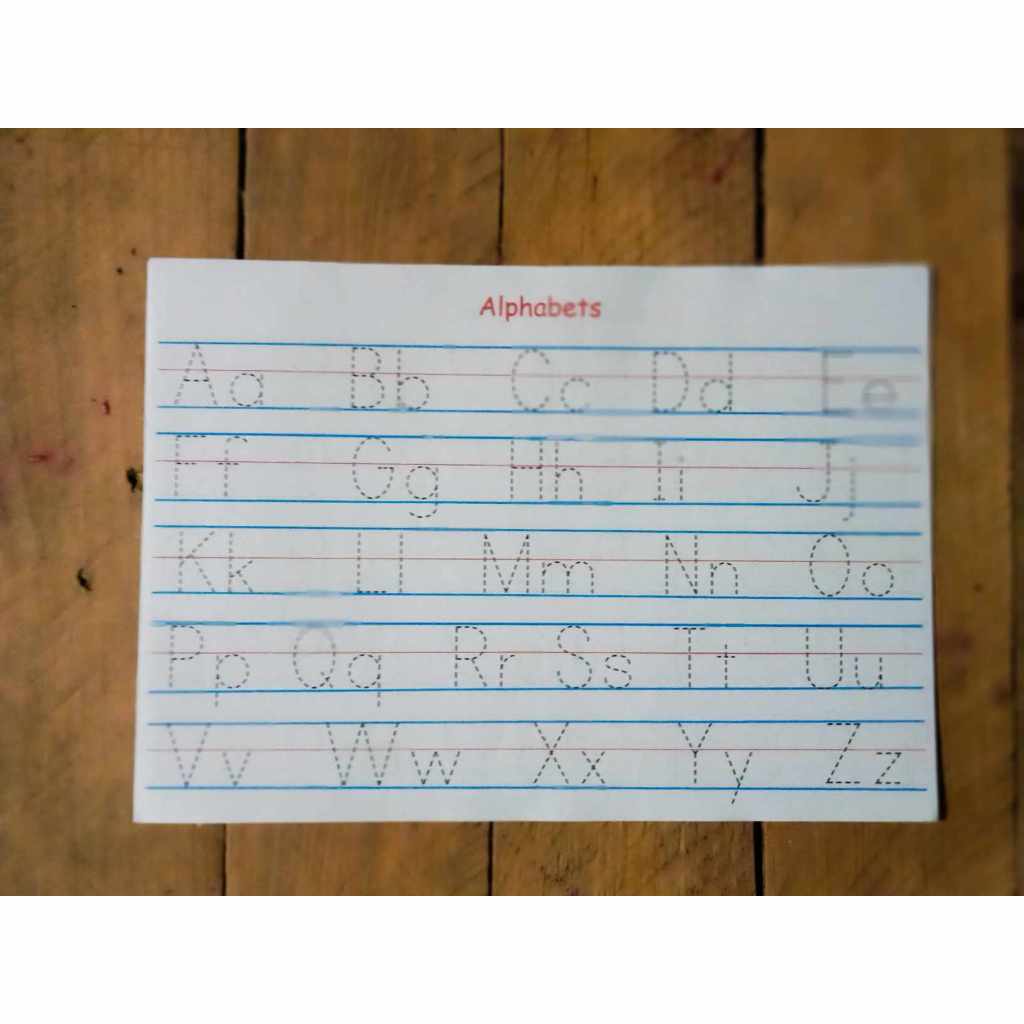 Alphabets
Aa Bb Cc Dd Ee
Ff Gg Hh Ii Jj
Kk Ll Mm Nn Oo
Pp Qq Rr Ss Tt Uu
Vv Ww Xx Yy Zz